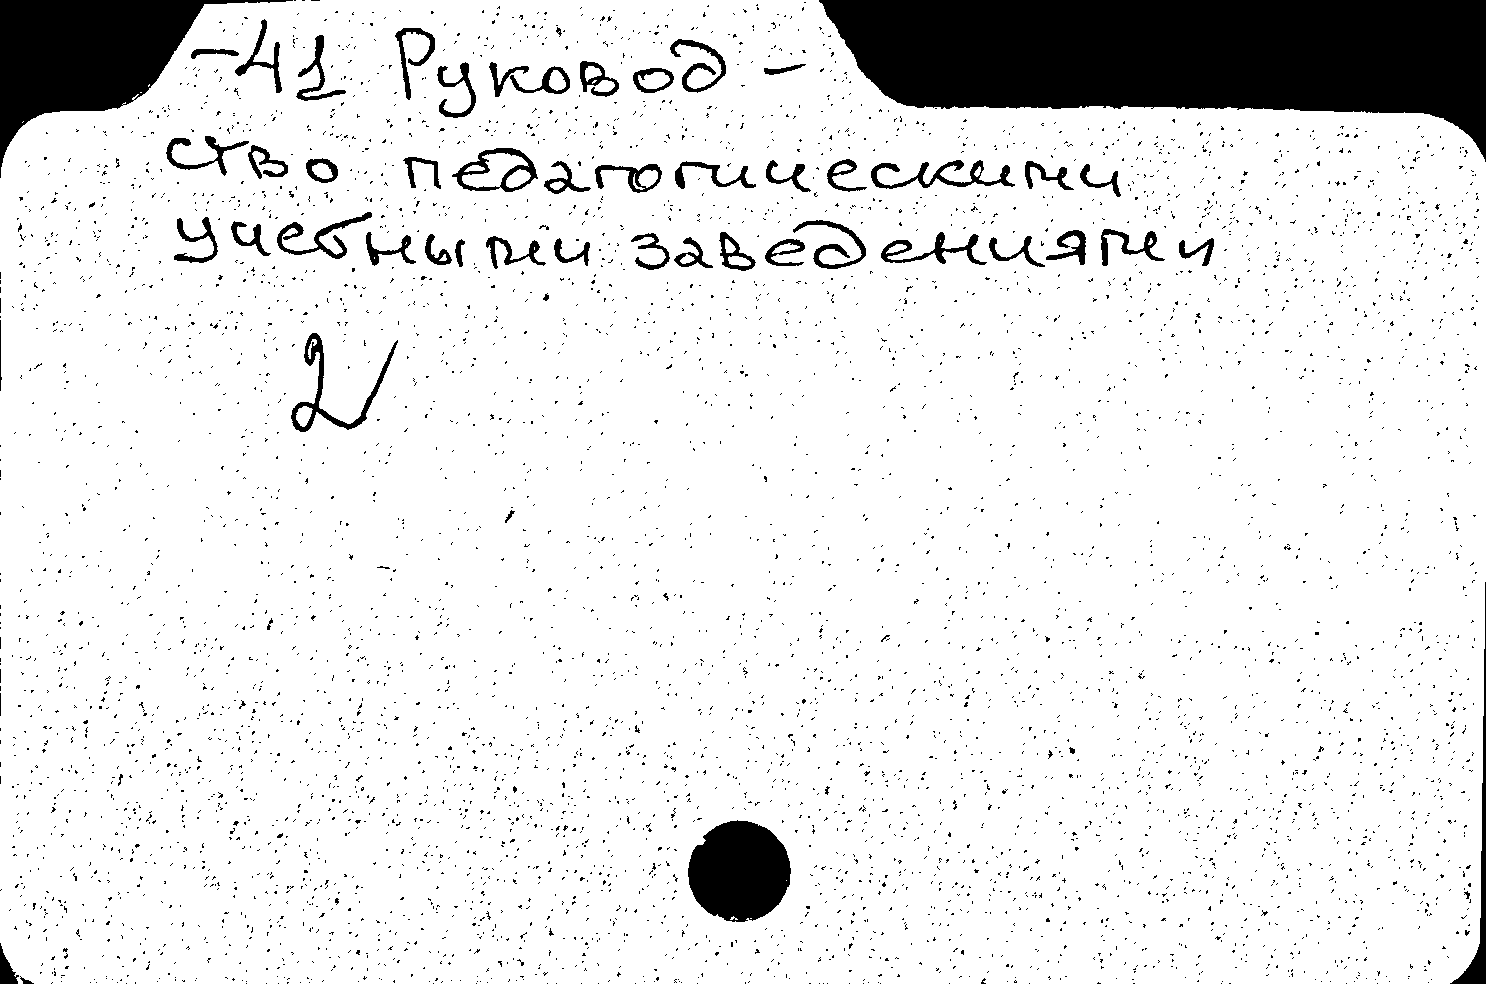 -41 Руковод-
ство педагогическими
учебными заведениями
2